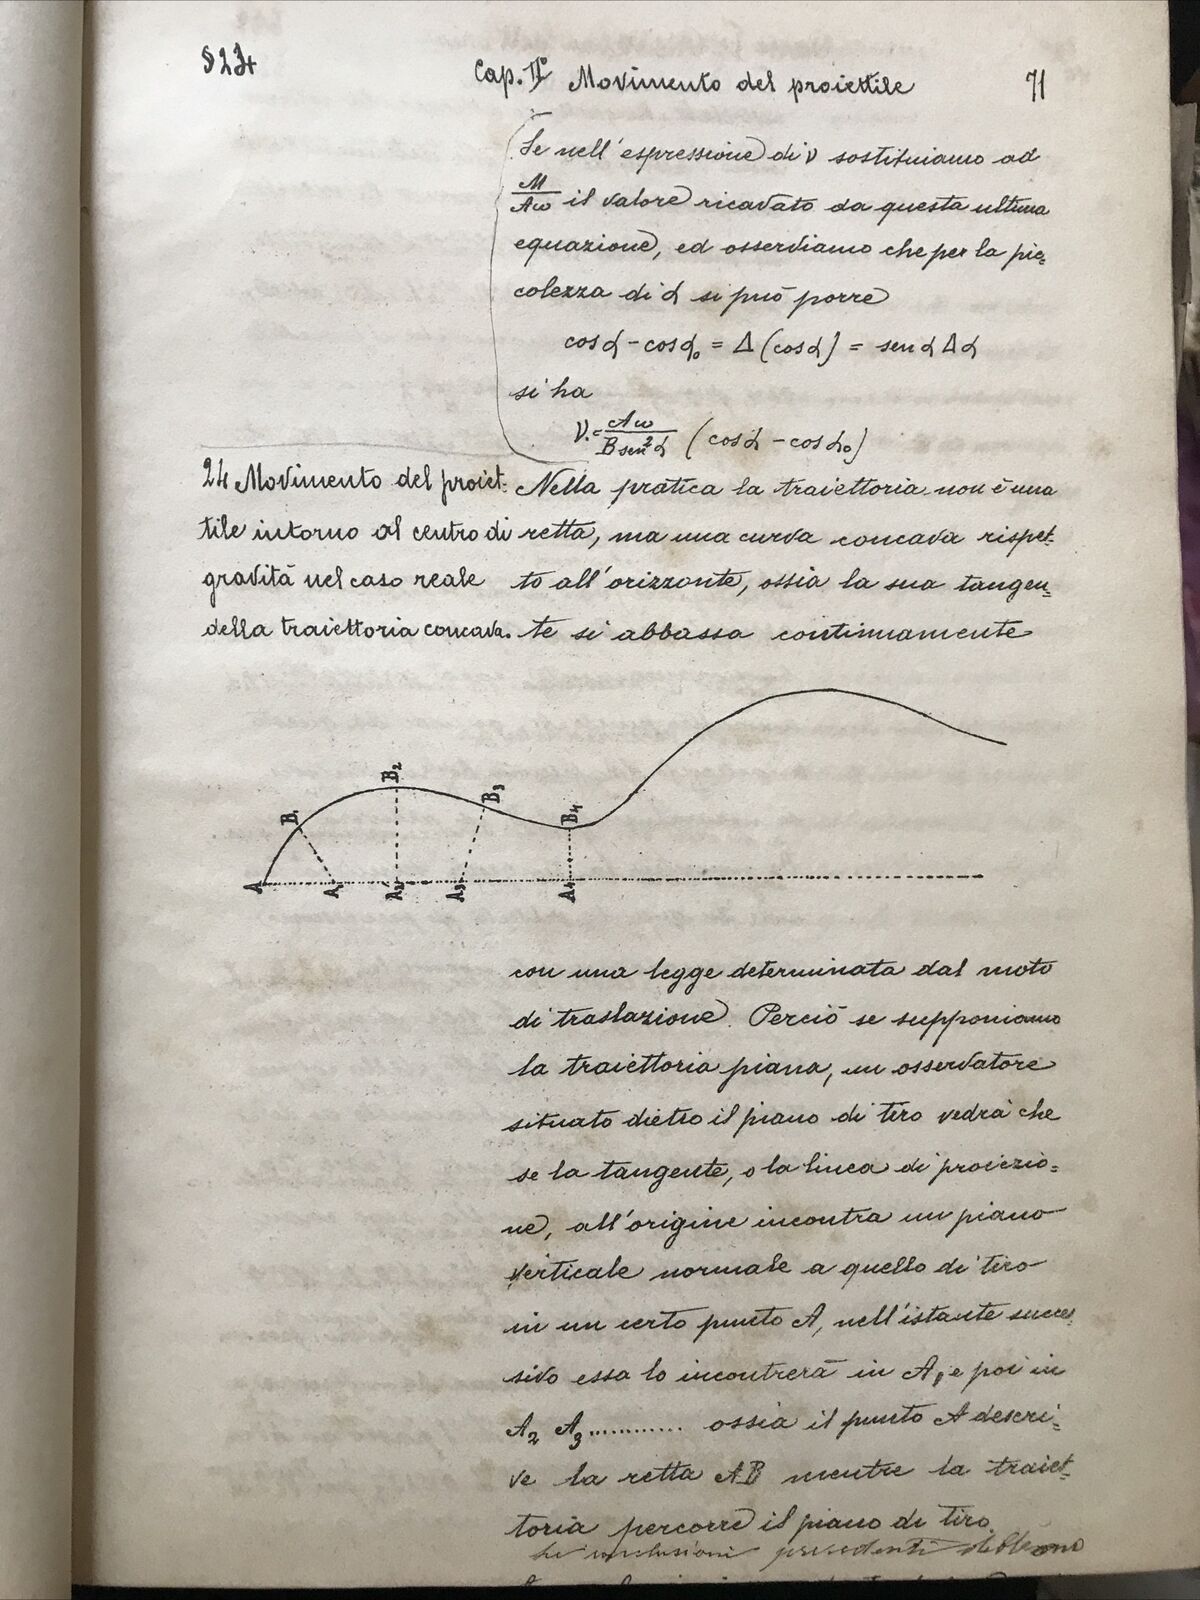 §24
Cap. II° Movimento del proiettile
71
Se nell'espressione di ν sostituiamo ad
M/Aω il valore ricavato da questa ultima
equazione, ed osserviamo che per la pic=
colezza di α si può porre
cos α - cos α₀ = Δ (cos α) = sen α Δα
si ha
ν = Aω/B sen² α (cos α - cos α₀)
24 Movimento del proiet=
tile intorno al centro di
gravità nel caso reale
della traiettoria concava.
Nella pratica la traiettoria non è una
retta, ma una curva concava rispet=
to all'orizzonte, ossia la sua tangen=
te si abbassa continuamente
A B₁ B₂ B₃ B₄
A₁ A₂ A₃ A₄
con una legge determinata dal moto
di traslazione. Perciò se supponiamo
la traiettoria piana, un osservatore
situato dietro il piano di tiro vedrà che
se la tangente, o la linea di proiezio=
ne, all'origine incontra un piano
verticale normale a quello di tiro
in un certo punto A, nell'istante succes
sivo essa lo incontrerà in A₁, e poi in
A₂ A₃ ........... ossia il punto A descri=
ve la retta AB mentre la traiet=
toria percorre il piano di tiro.
precedenti debbono